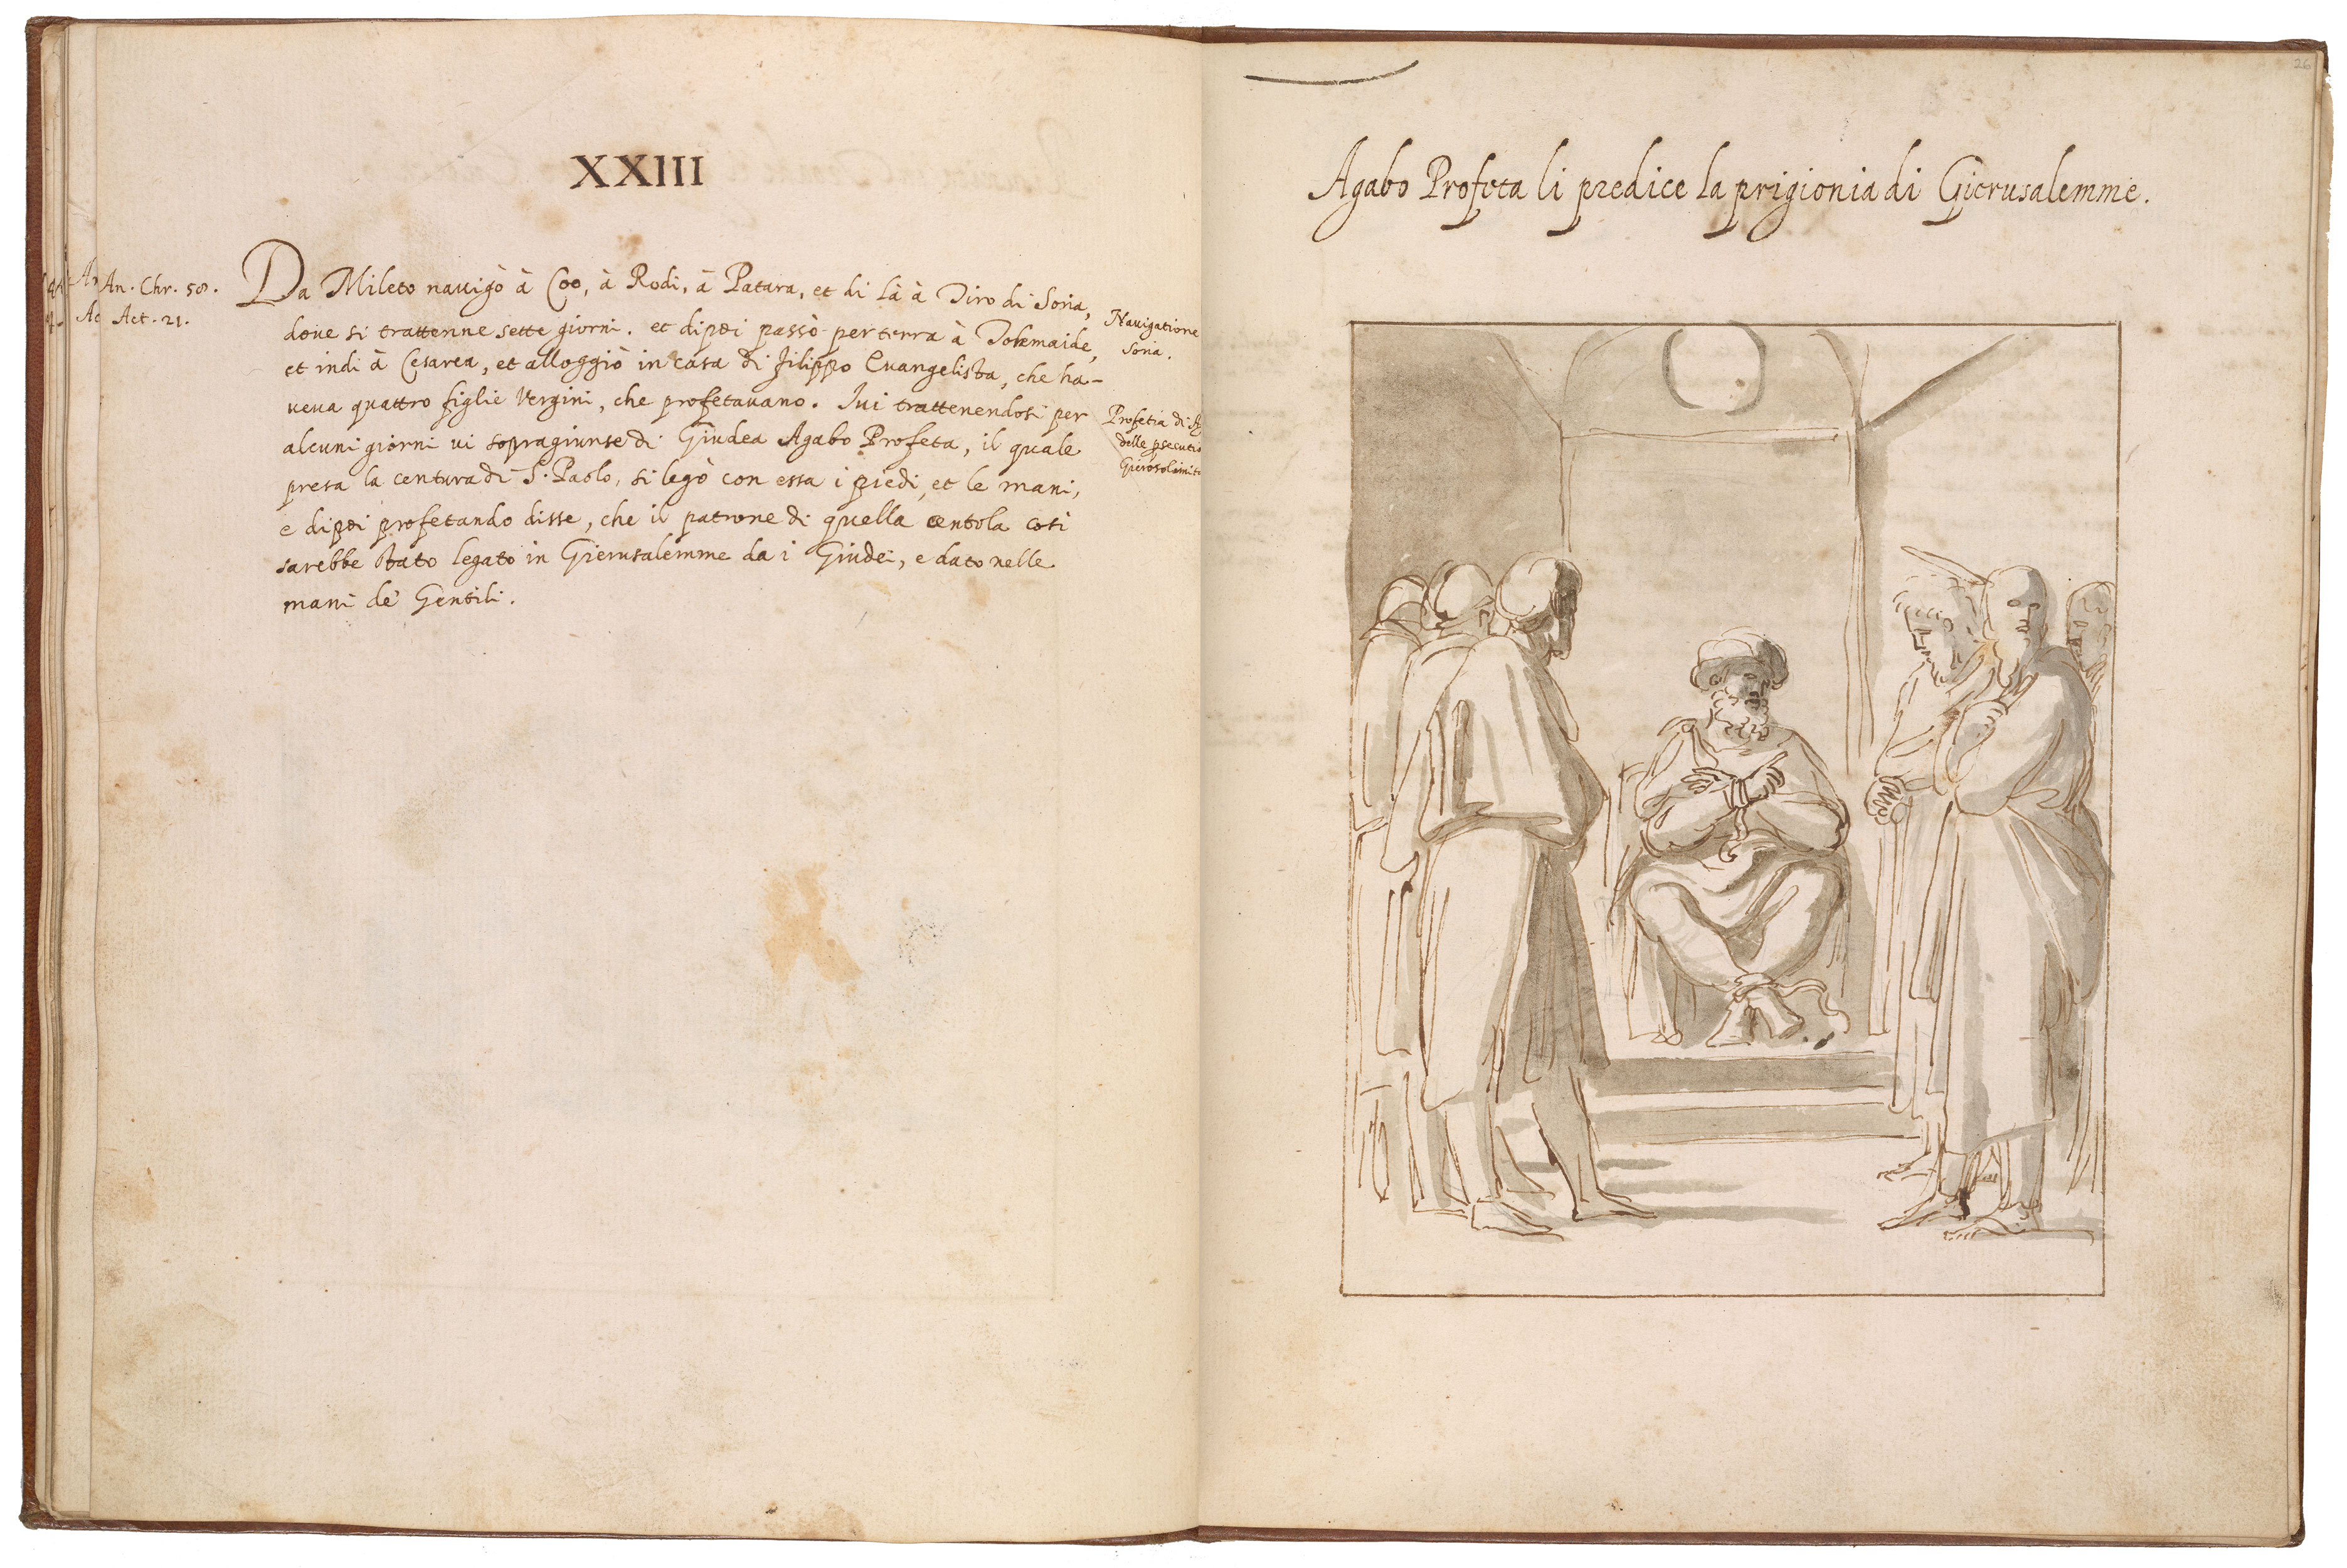 XXIII
An. Chr. 58.
Act. 21.
Da Mileto nauigò à Coo, à Rodi, à Patara, et di là à Tiro di Soria,
doue si trattenne sette giorni. et dipoi passò per terra à Tolemaide,
et indi à Cesarea, et alloggiò in casa di Filippo Euangelista, che ha-
ueua quattro figlie Vergini, che profetauano. Iui trattenendosi per
alcuni giorni ui sopragiunse di Giudea Agabo Profeta, il quale
presa la centura di S. Paolo, si legò con essa i piedi, et le mani,
e dipoi profetando disse, che il patrone di quella centola così
sarebbe stato legato in Gierusalemme da i Giudei, e dato nelle
mani de' Gentili.
Nauigatione
Soria.
Profetia di
delle psecutio
Gierosolimit
26
Agabo Profeta li predice la prigionia di Gierusalemme.